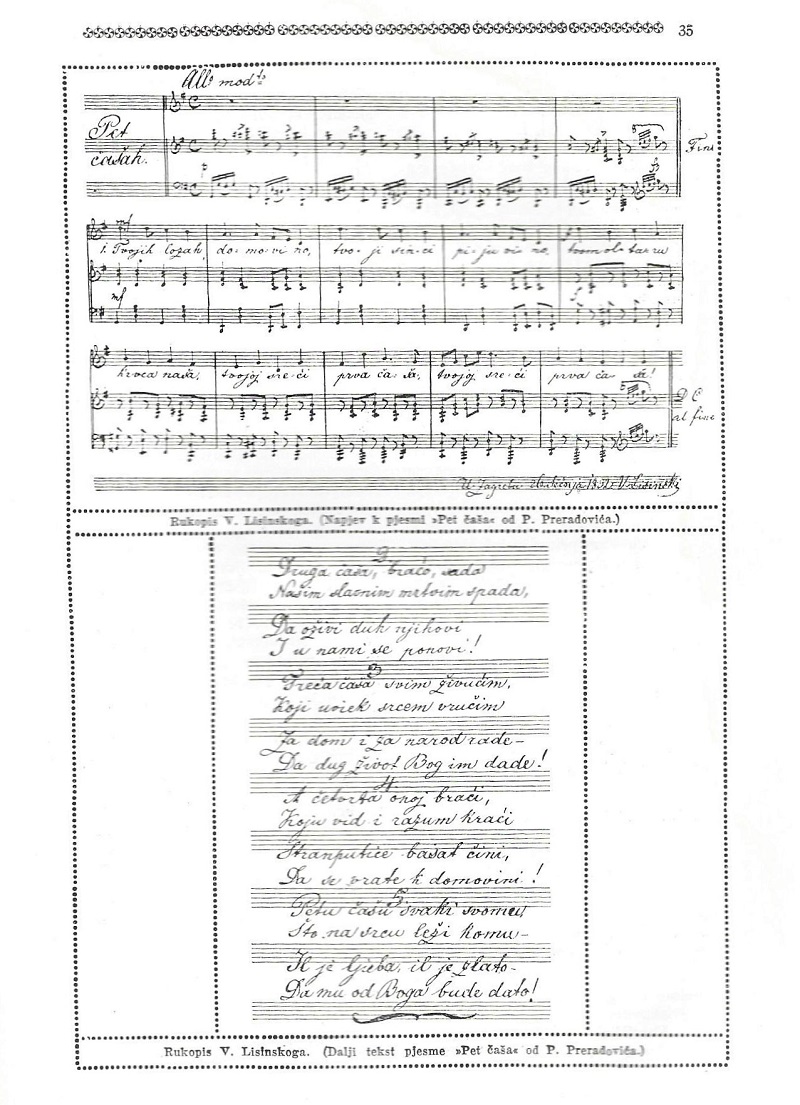 35
All° modto
Pet
čašah.
Fine
mf
1. Tvojih lozah do-mo-vi-no, tvo-ji sin-ci pi-ju vi-no, tvom ol-taru
mf
krvca naša, tvojoj sre-ći prva ča-ša, tvojoj sre-ći prva ča-ša!
D C
al fine
U Zagrebu V. Lisinski
Rukopis V. Lisinskoga. (Napjev k pjesmi »Pet čaša« od P. Preradovića.)
2
Druga čaša, braćo, sada
Našim slavnim mrtvim spada,
Da oživi duh njihovi
I u nami se ponovi!
3
Treća čaša svim živućim,
Koji uviek srcem vrućim
Za dom i za narod rade–
Da dug život Bog im dade!
4
A četvrta onoj braći,
Koju vid i razum kraći
Stranputice basat čini,
Da se vrate k domovini!
5
Petu čašu svaki svomu,
Što na srcu leži komu–
Il je ljuba, il je zlato–
Da mu od Boga bude dato!
Rukopis V. Lisinskoga. (Dalji tekst pjesme »Pet čaša« od P. Preradovića.)